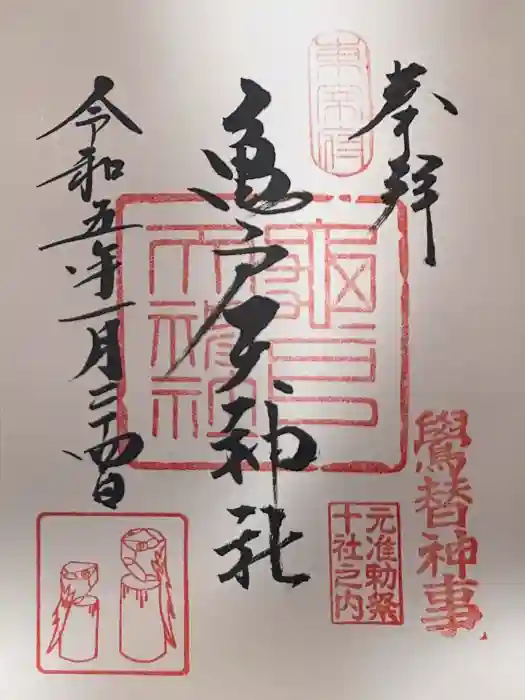 奉拝
東宰府
亀戸天神社
亀戸天神社
令和五年一月二十四日
鷽替神事
元准勅祭
十社之内